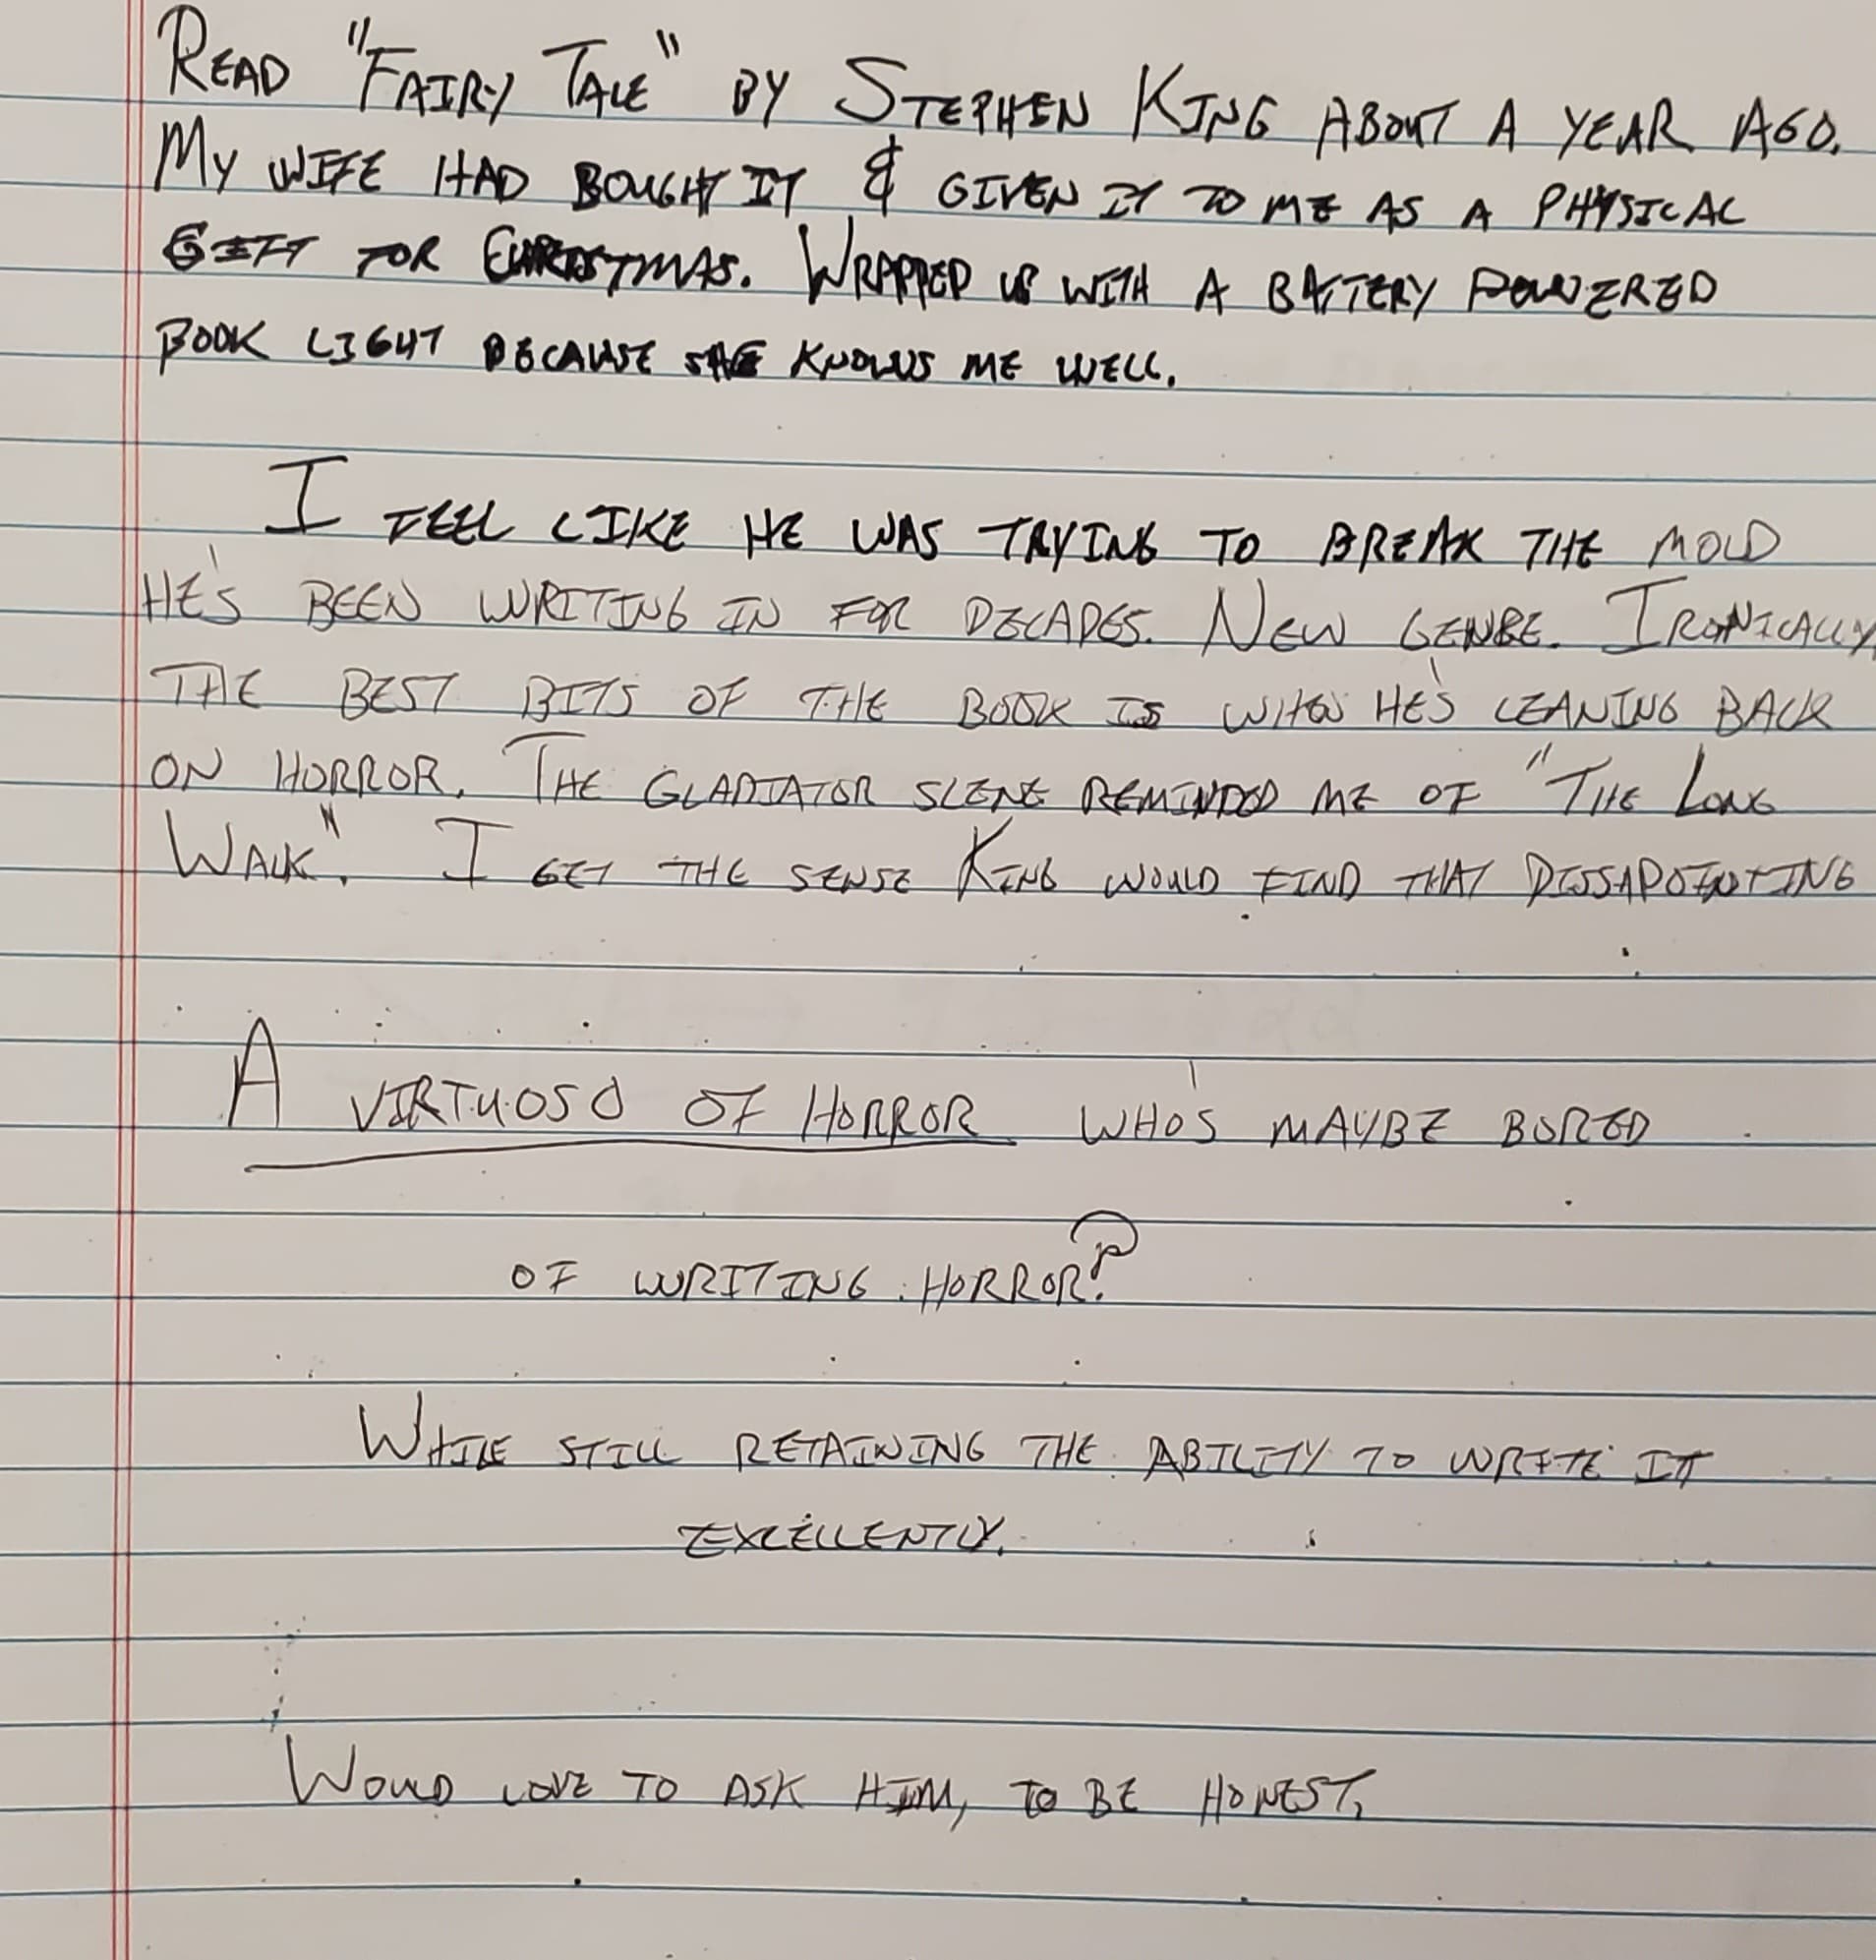 READ "FAIRY TALE" BY STEPHEN KING ABOUT A YEAR AGO.
MY WIFE HAD BOUGHT IT & GIVEN IT TO ME AS A PHYSICAL
GIFT FOR CHRISTMAS. WRAPPED UP WITH A BATTERY POWERED
BOOK LIGHT BECAUSE SHE KNOWS ME WELL.
I FEEL LIKE HE WAS TRYING TO BREAK THE MOLD
HE'S BEEN WRITING IN FOR DECADES. NEW GENRE. IRONICALLY,
THE BEST BITS OF THE BOOK IS WHEN HE'S LEANING BACK
ON HORROR. THE GLADIATOR SCENE REMINDED ME OF "THE LONG
WALK". I GET THE SENSE KING WOULD FIND THAT DISSAPOINTING
A VIRTUOSO OF HORROR WHO'S MAYBE BORED
OF WRITING HORROR?
WHILE STILL RETAINING THE ABILITY TO WRITE IT
EXCELLENTLY.
WOULD LOVE TO ASK HIM, TO BE HONEST.